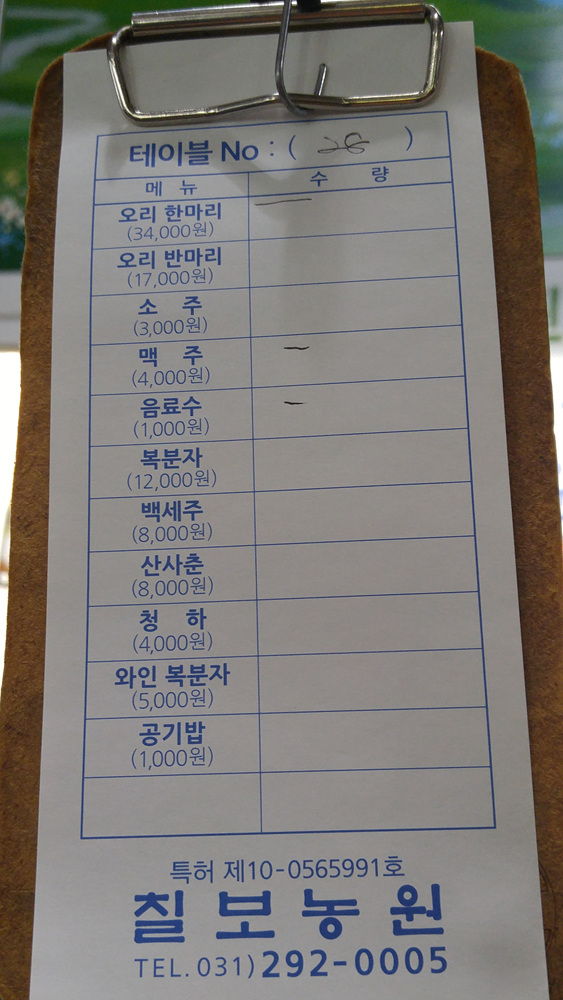 테이블 No : ( 26 )
메 뉴 수 량
오리 한마리 一
(34,000원)
오리 반마리
(17,000원)
소 주
(3,000원)
맥 주 一
(4,000원)
음료수 一
(1,000원)
복분자
(12,000원)
백세주
(8,000원)
산사춘
(8,000원)
청 하
(4,000원)
와인 복분자
(5,000원)
공기밥
(1,000원)
특허 제10-0565991호
칠보농원
TEL. 031) 292-0005